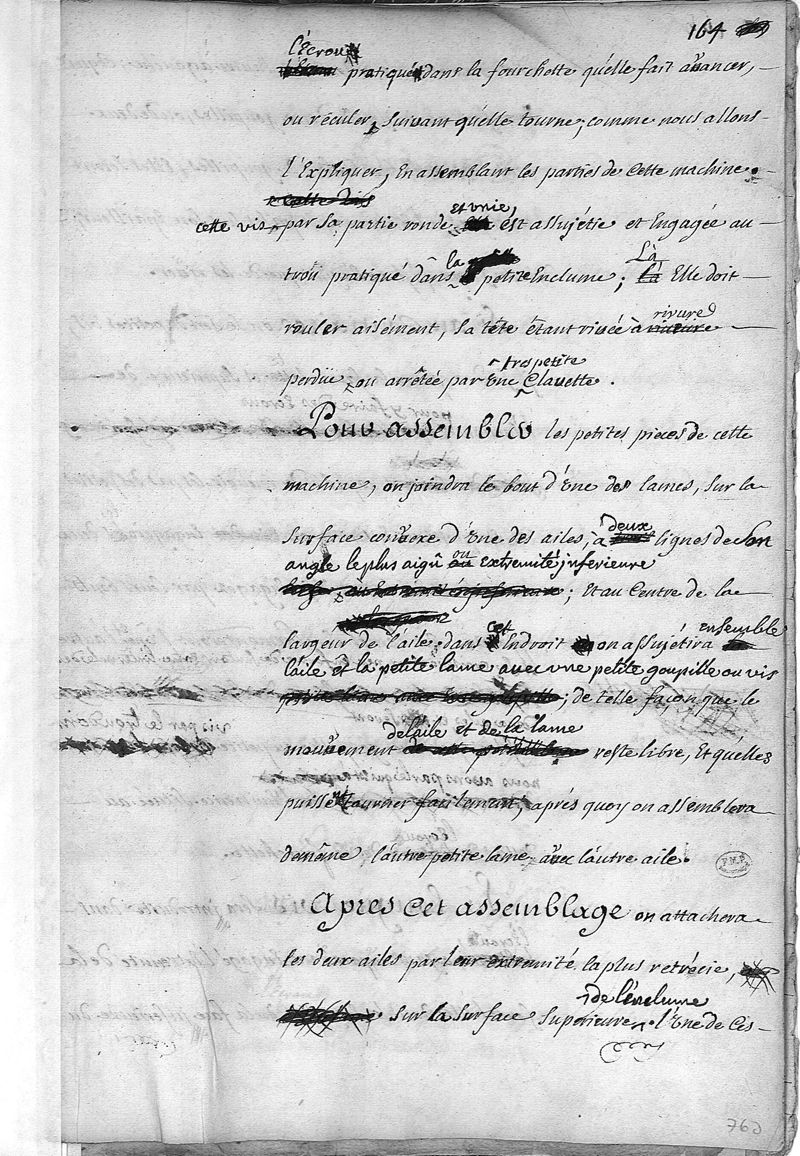 164
l'Ecrou
pratiqué dans la fourchette qu'elle fait avancer,
ou réculer, suivant qu'elle tourne; comme nous allons
l'Expliquer, En assemblant les parties de Cette machine.
cette vis
et unie,
cette vis par sa partie ronde est assujétie et Engagée au
la Là
trou pratiqué dans petite Enclume; la Elle doit
rivure
rouler aisément, sa tête étant rivée à rivure
tres petite
perdüe, ou arrêtée par Une Clavette.
Pour assembler les petites pieces de cette
machine, on joindra le bout d'Une des lames, sur la
deux
surface convexe d'Une des ailes, a lignes de son
angle le plus aigû ou extremité inferieure
; Et au Centre de la
cet ensemble
largeur de l'aile, dans Endroit on assujétira
l'aile et la petite lame avec une petite goupille ou vis
; De telle façon que le
de l'aile et de la lame
mouvement reste libre, Et qu'elles
puissent tourner facilement, aprés quoy on assemblera
de même l'autre petite lame avec l'autre aile.
Apres Cet assemblage on attachera
les deux ailes par leur extremité la plus retrécie,
de l'énclume
sur la surface superieure. l'Une de Ces
760